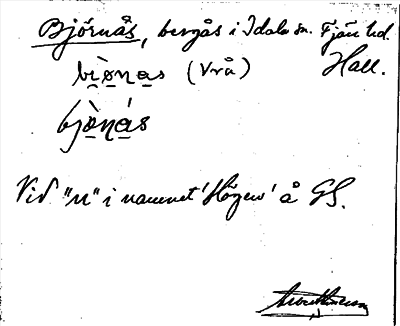 Björnås, bergås i Idala sn. Fjäre hd.
bi̯ò̱na̱s (Vrå) Hall.
bjò̱ná̱s
Vid "n" i namnet 'Högen' å GS.